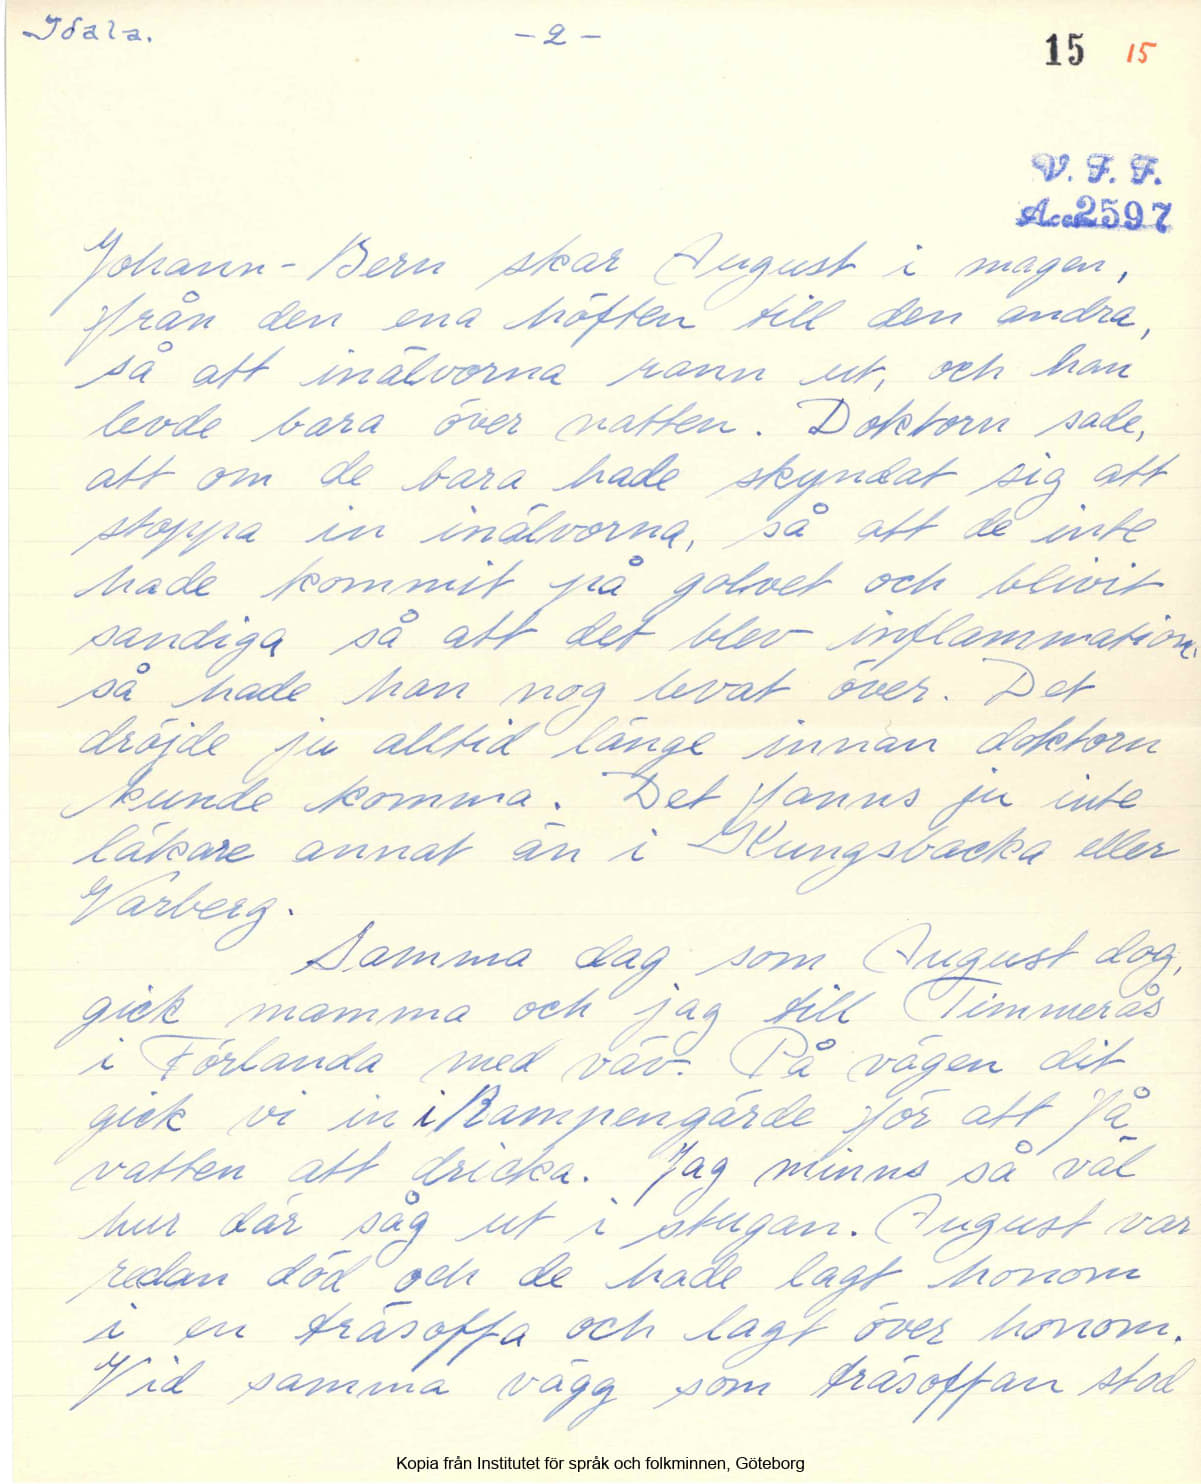 Idala.
- 2 -
15 15
V. F. F.
Acc 2597
Johann-Bern skar August i magen,
från den ena höften till den andra,
så att inälvorna rann ut, och han
levde bara över natten. Doktorn sade,
att om de bara hade skyndat sig att
stoppa in inälvorna, så att de inte
hade kommit på golvet och blivit
sandiga så att det blev inflammation,
så hade han nog levat över. Det
dröjde ju alltid länge innan doktorn
kunde komma. Det fanns ju inte
läkare annat än i Kungsbacka eller
Varberg.
Samma dag som August dog,
gick mamma och jag till Timmerås
i Förlanda med väv. På vägen dit
gick vi in i Rampengärde för att få
vatten att dricka. Jag minns så väl
hur där såg ut i stugan. August var
redan död och de hade lagt honom
i en träsoffa och lagt över honom.
Vid samma vägg som träsoffan stod
Kopia från Institutet för språk och folkminnen, Göteborg